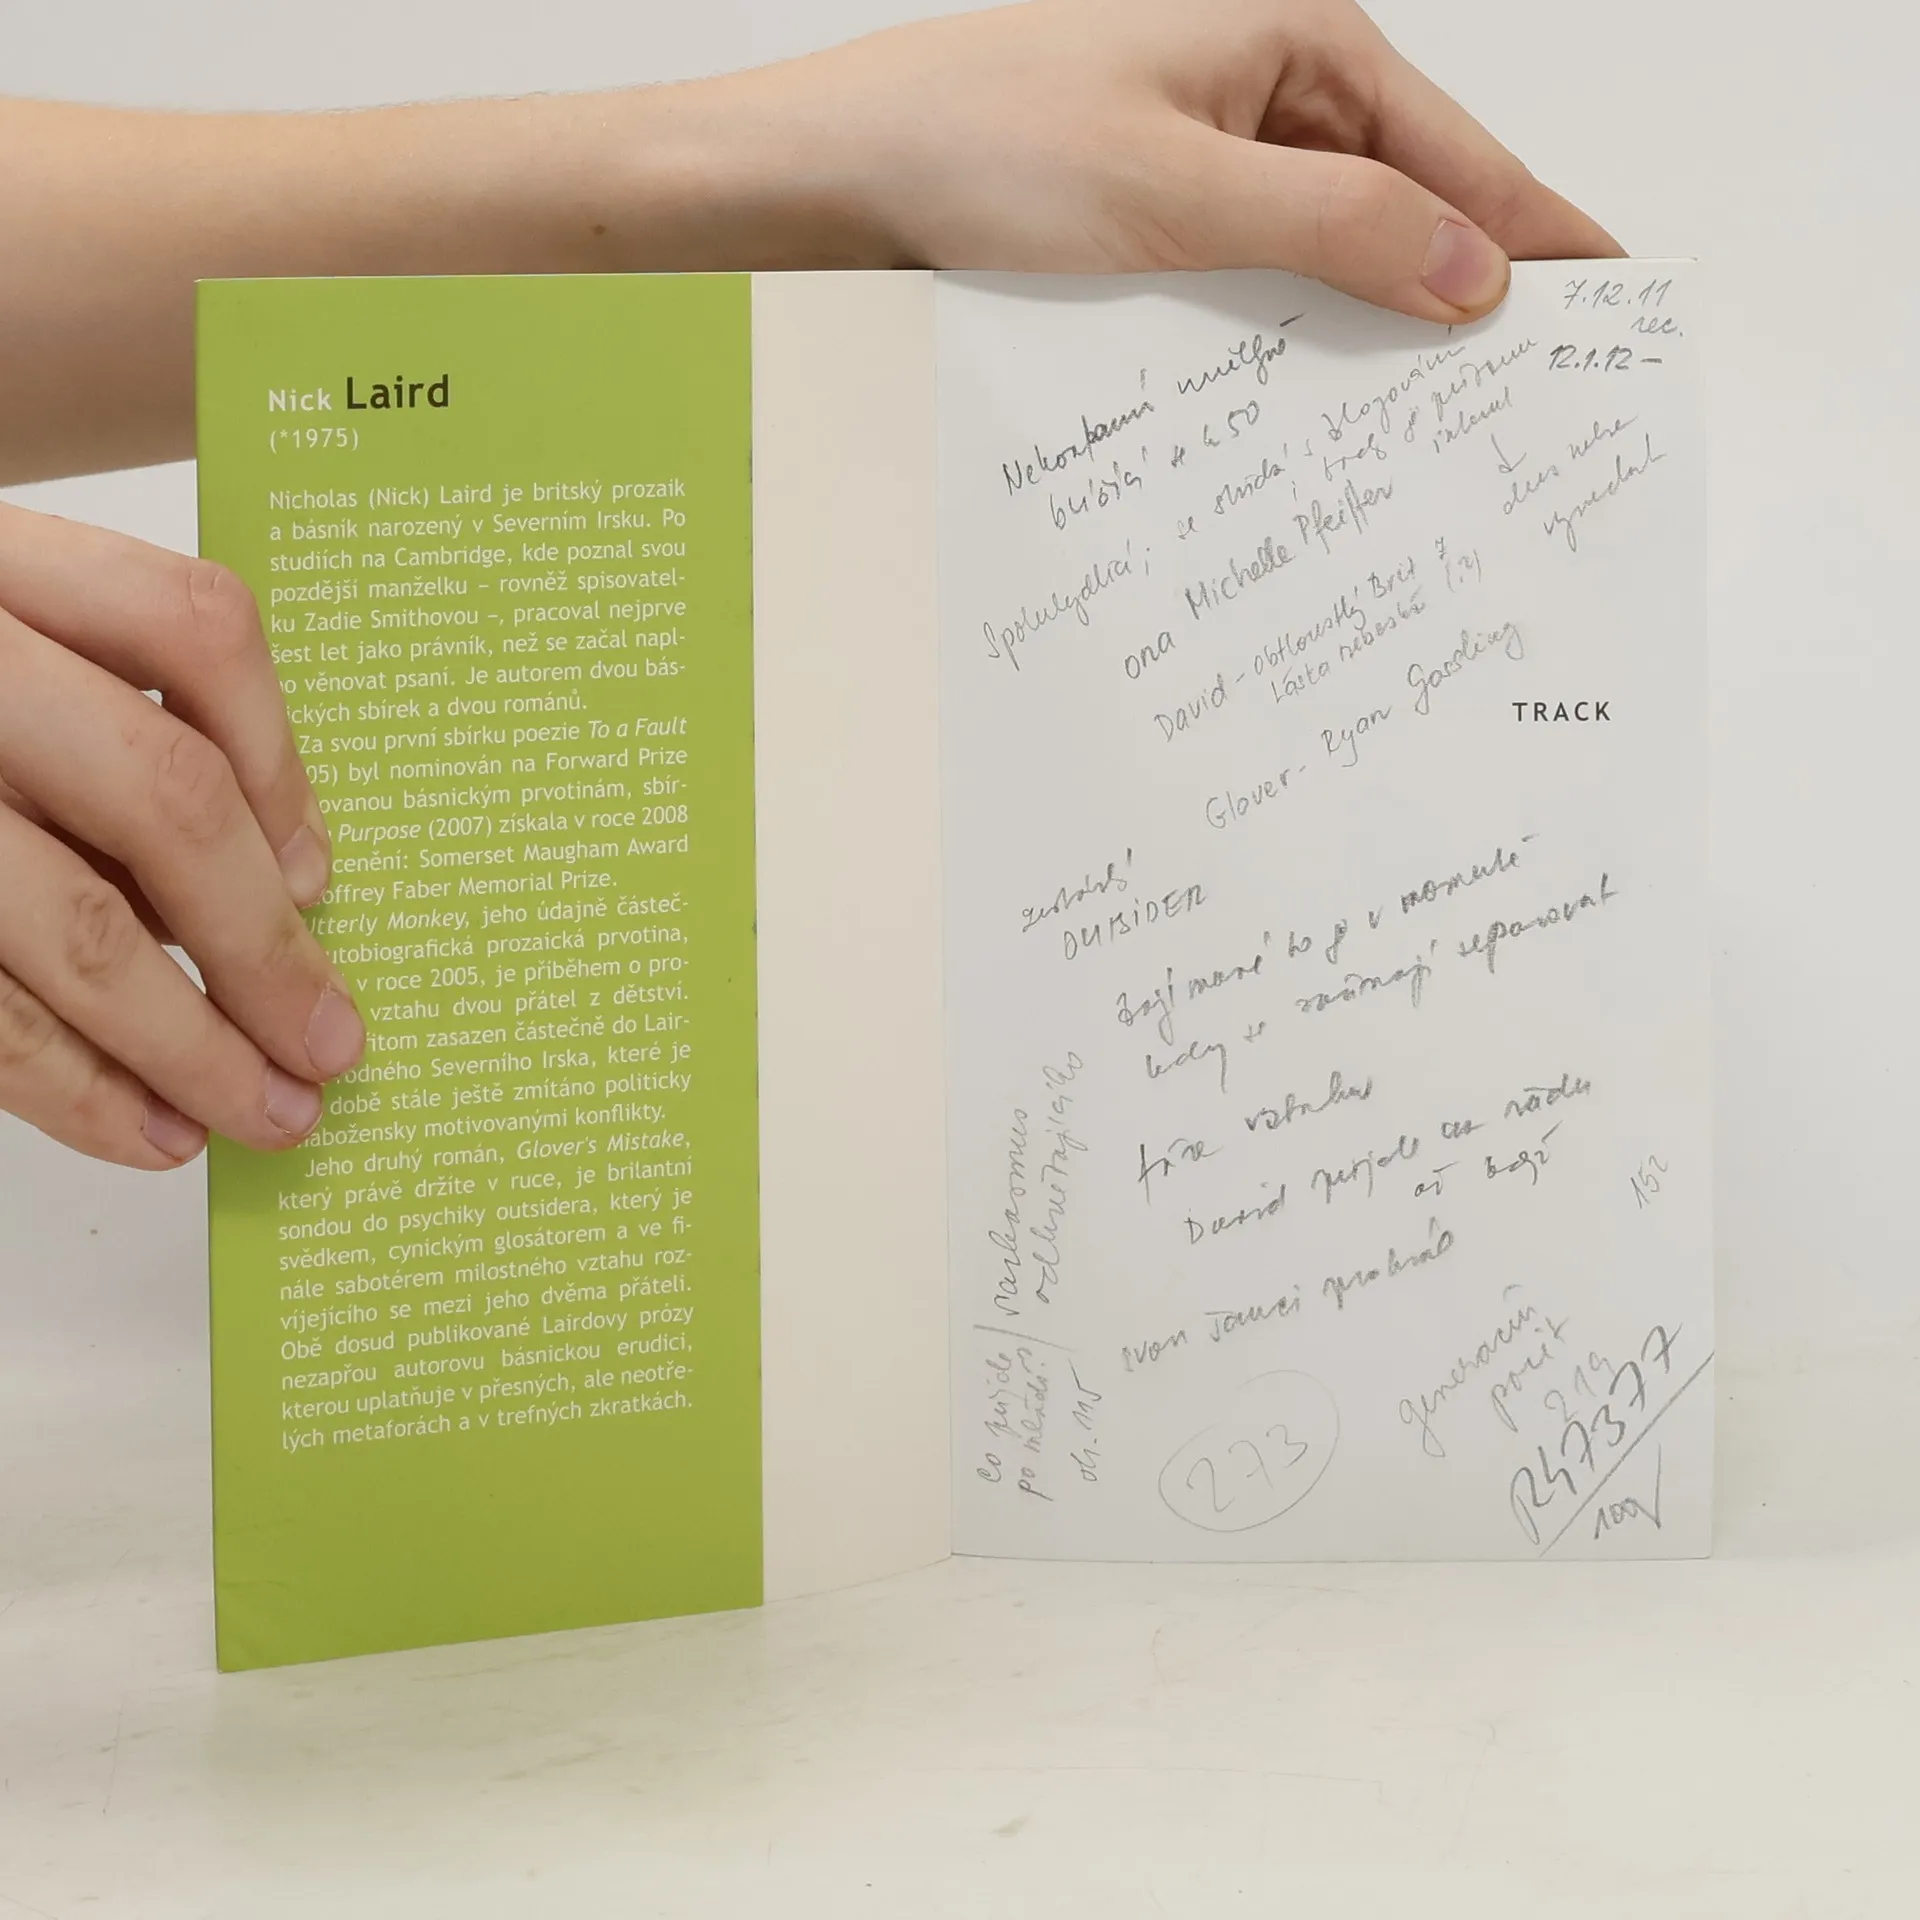 Nick Laird
(*1975)
Nicholas (Nick) Laird je britský prozaik
a básník narozený v Severním Irsku. Po
studiích na Cambridge, kde poznal svou
pozdější manželku – rovněž spisovatel-
ku Zadie Smithovou –, pracoval nejprve
šest let jako právník, než se začal napl-
no věnovat psaní. Je autorem dvou bás-
ických sbírek a dvou románů.
Za svou první sbírku poezie To a Fault
05) byl nominován na Forward Prize
ovanou básnickým prvotinám, sbír-
Purpose (2007) získala v roce 2008
cenění: Somerset Maugham Award
offrey Faber Memorial Prize.
Utterly Monkey, jeho údajně částeč-
utobiografická prozaická prvotina,
v roce 2005, je příběhem o pro-
vztahu dvou přátel z dětství.
řitom zasazen částečně do Lair-
rodného Severního Irska, které je
době stále ještě zmítáno politicky
nábožensky motivovanými konflikty.
Jeho druhý román, Glover's Mistake,
který právě držíte v ruce, je brilantní
sondou do psychiky outsidera, který je
svědkem, cynickým glosátorem a ve fi-
nále sabotérem milostného vztahu roz-
víjejícího se mezi jeho dvěma přáteli.
Obě dosud publikované Lairdovy prózy
nezapřou autorovu básnickou erudici,
kterou uplatňuje v přesných, ale neotře-
lých metaforách a v trefných zkratkách.
7.12.11
rec.
12.1.12 –
50
Spolubydlící; se
ona Michelle Pfeiffer
David – obtloustlý Brit
Láska nebeská (?)
Glover – Ryan Gosling
TRACK
OUTSIDER
Zajímavé to je v momentě
kdy se začínají separovat
tíže vztahu
David přijde na řadu
až když
152
sarkasmus
co přijde
po mládí
str. 115
273
generační
pocit
219
R47377
100